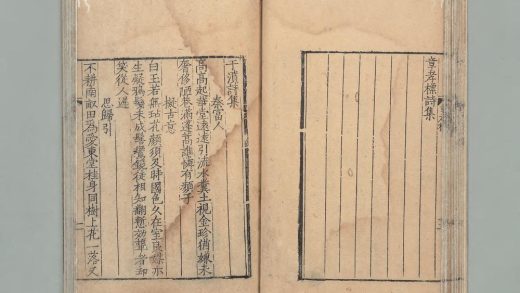 章孝標詩集
于濆詩集
秦富人
高高起華堂遠遠引流水糞土視金珍猶嫌未
奢侈陋巷滿蓬蒿誰憐有顏子
擬古意
白玉若無玷花顏須及時國色久在室良媒亦
生疑鴉鬟未成髻鸞鏡徒相知翻慙効顰者却
笑從人遲
思歸引
不耕南畝田為愛東堂桂身同樹上花一落又